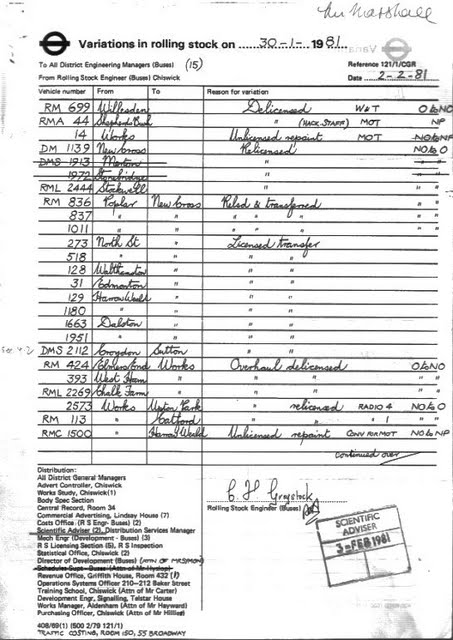 Mr Marshall
Variations in rolling stock on 30-1- 1981
To All District Engineering Managers (Buses) (15) Reference 121/1/CGR
From Rolling Stock Engineer (Buses) Chiswick Date 2-2-81
Vehicle number From To Reason for variation
RM 699 Willesden Delicensed W&T O to NO
RMA 44 Shepherds Bush " (HACK. STAFF) MOT NP
14 Works Unlicensed repaint MOT NO to NP
DM 1139 New Cross Relicensed NO to O
DMS 1913 Merton " " "
1972 Stonebridge " " "
RML 2444 Stockwell " " "
RM 836 Poplar New Cross Relsd & transferred " "
837 " " " " " " "
1011 " " " " " " "
273 North St " Licensed transfer
518 " " " "
128 Walthamstow " " "
31 Edmonton " " "
129 Harrow Weald " " "
1180 " " " "
1663 Dalston " " "
1951 " " " "
See 4-2 DMS 2112 Croydon Sutton " "
RM 424 Elmers End Works Overhaul delicensed O to NO
393 West Ham " " " " "
RML 2269 Chalk Farm " " " " "
2573 Works Upton Park " relicensed RADIO 4 NO to O
RM 113 " Catford " " " 1 " "
RMC 1500 " Harrow Weald Unlicensed repaint CONV FOR MOT NO to NP
continued over
Distribution:
All District General Managers
Advert Controller, Chiswick
Works Study, Chiswick (1)
Body Spec Section
Central Record, Room 34
Commercial Advertising, Lindsay House (7)
Costs Office (R S Engr- Buses) (2)
Scientific Adviser (2), Distribution Services Manager
Mech Engr (Development - Buses) (3)
R S Licensing Section (5), R S Inspection
Statistical Office, Chiswick (2)
Director of Development (Buses) (ATTN OF MR SIMON)
Schedules Supt - Buses (Attn of Mr Hyslop)
Revenue Office, Griffith House, Room 432 (1)
Operations Systems Officer 210-212 Baker Street
Training School, Chiswick (Attn of Mr Carter)
Development Engr, Signalling, Telstar House
Works Manager, Aldenham (Attn of Mr Hayward)
Purchasing Officer, Chiswick (Attn of Mr Holmes)
408/69(1) (500 2/79 121/1)
TRAFFIC COSTING, ROOM 150, 55 BROADWAY
C H Graystock
Rolling Stock Engineer (Buses)
SCIENTIFIC
ADVISER
3-FEB 1981